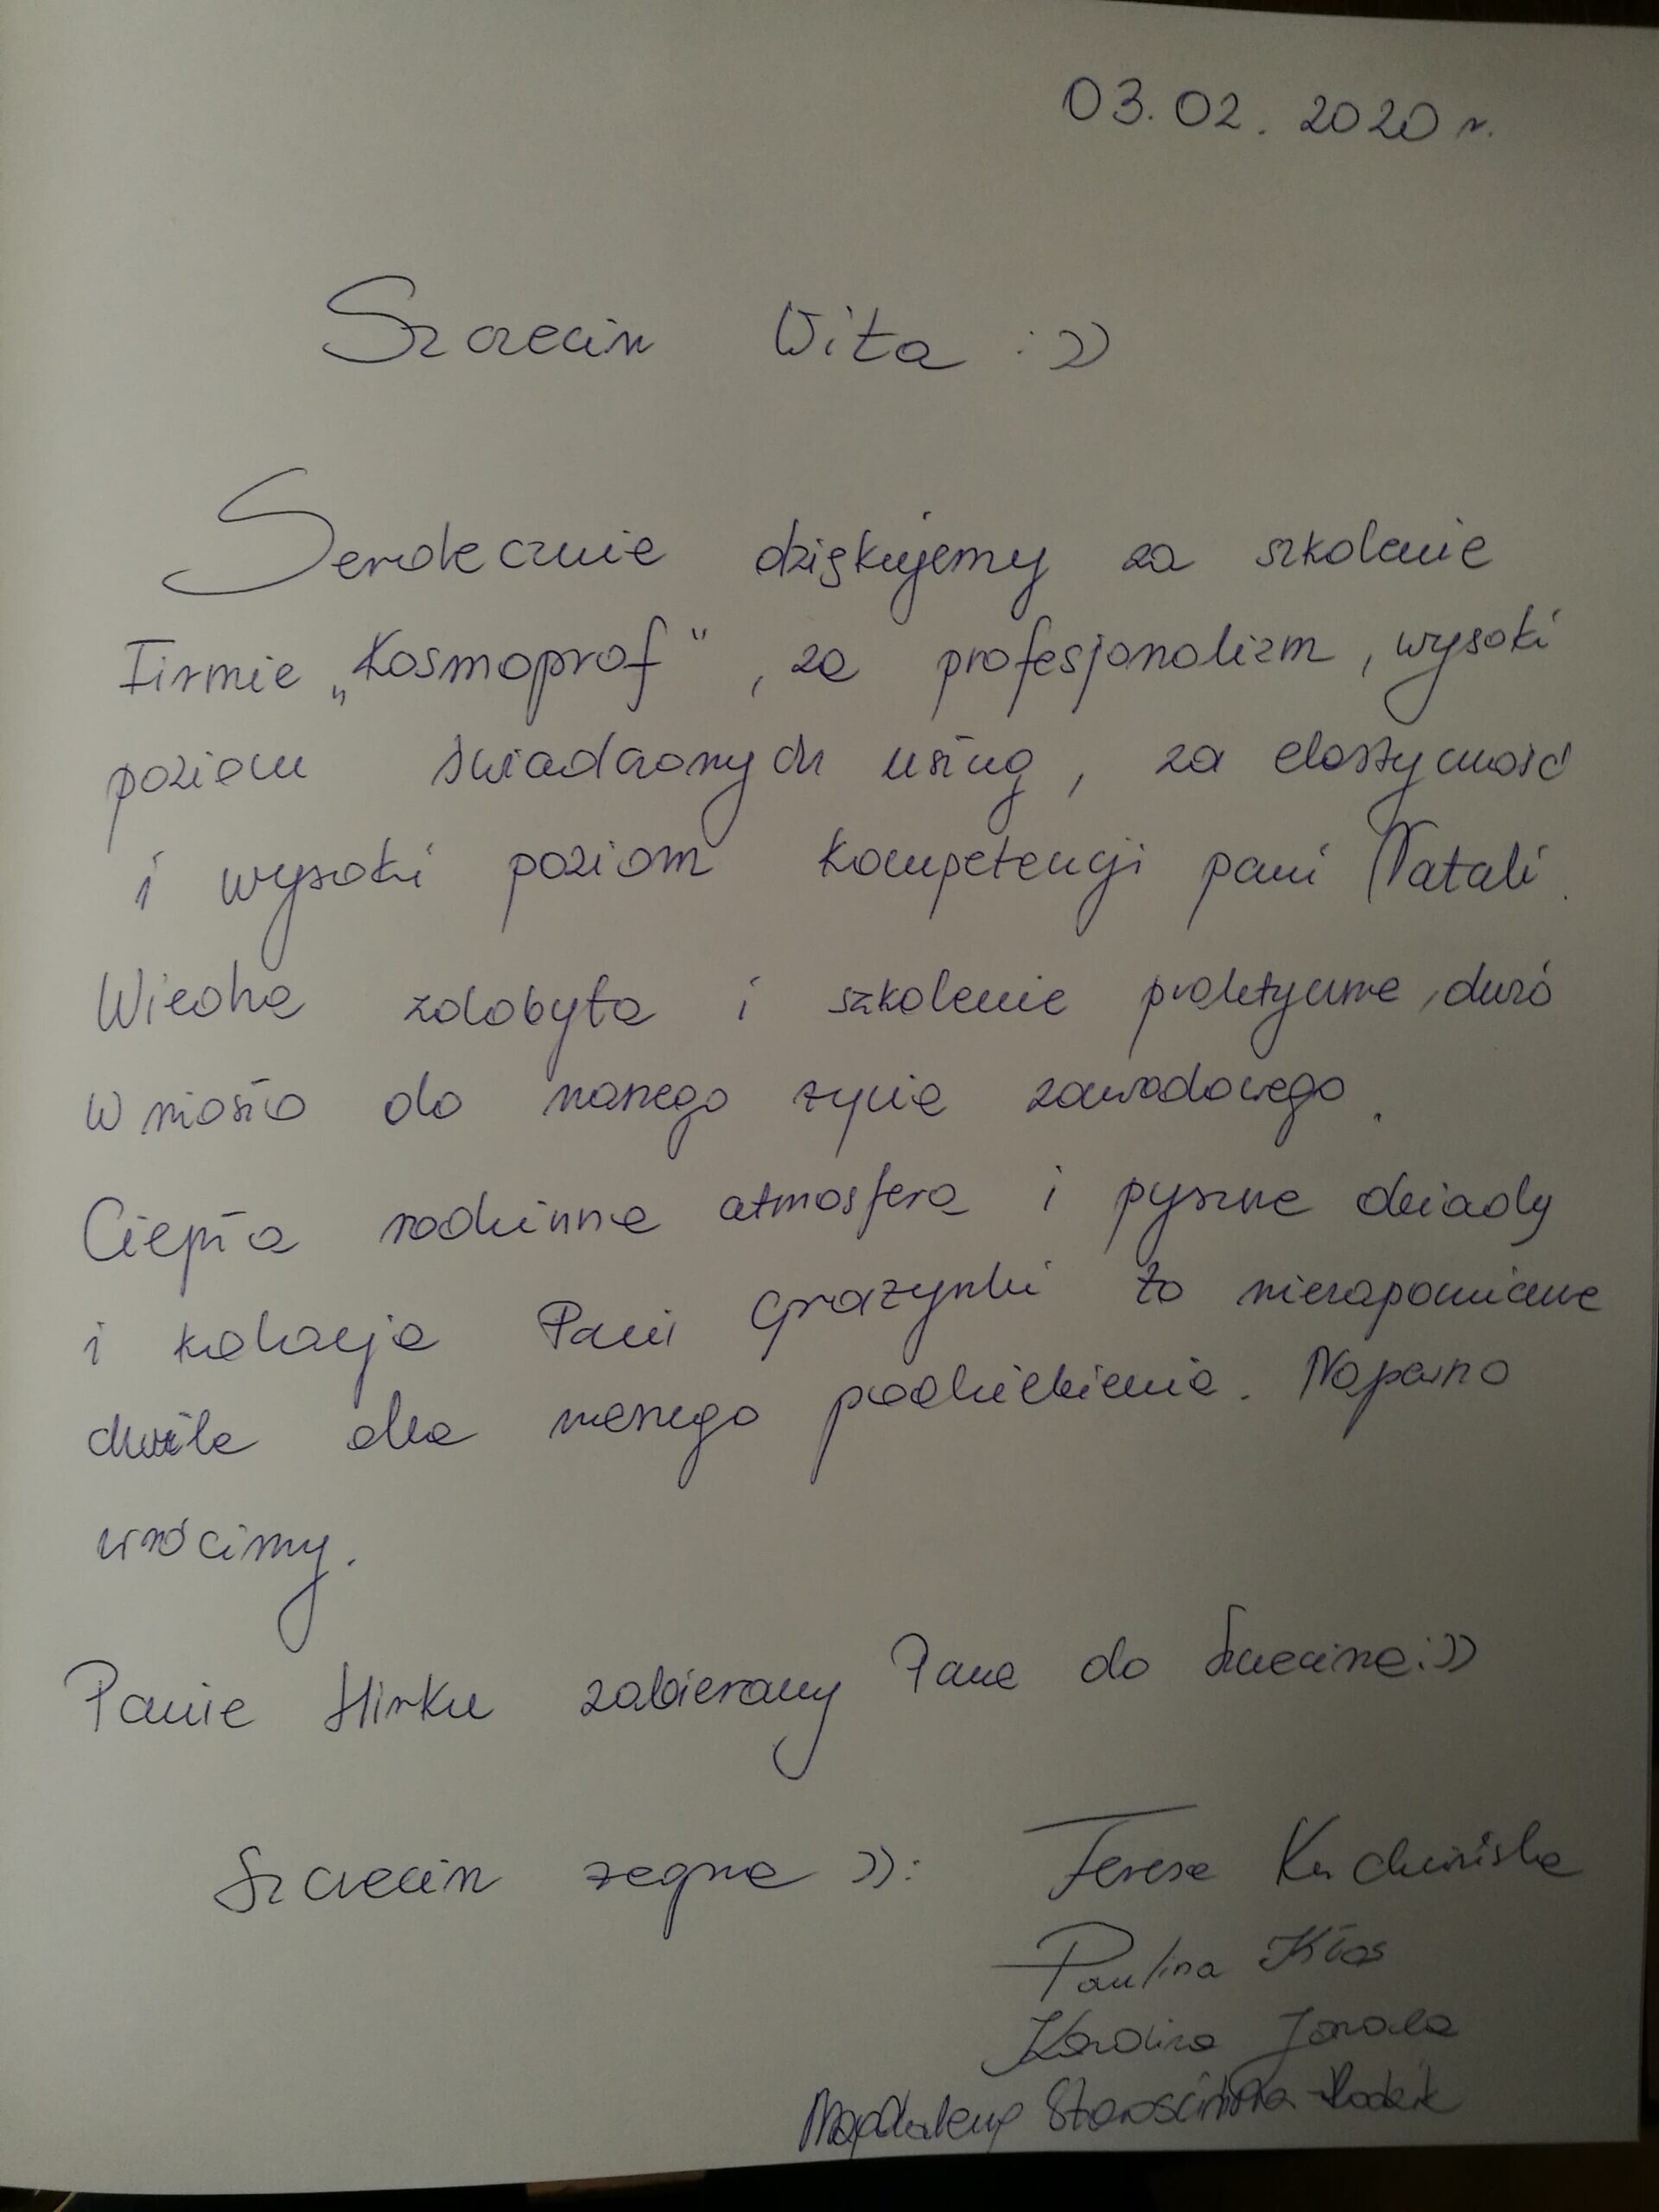 03.02.2020 r.
Szczecin Wita :))
Serdecznie dziękujemy za szkolenie
Firmie „Kosmoprof", za profesjonalizm, wysoki
poziom świadczonych usług, za elastyczność
i wysoki poziom kompetencji pani Natali.
Wiedza zdobyta i szkolenie praktyczne, dużo
wniosło do naszego życia zawodowego.
Ciepła rodzinna atmosfera i pyszne obiady
i kolacje Pani Grażynki to niezapomniane
chwile dla naszego podniebienia. Napewno
wrócimy.
Panie Mirku zabieramy Pana do Szczecina:))
Szczecin żegna )):
Teresa
Paulina Kłos
Karolina
Magdalena